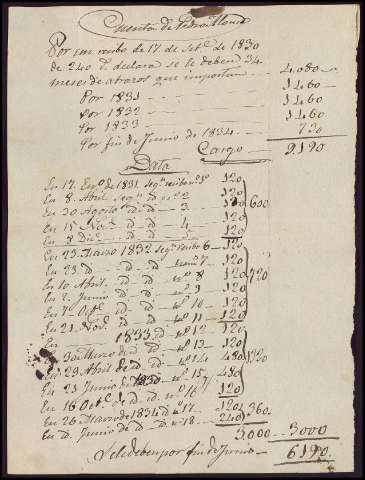 Cuenta de
Por un recibo de 17 de Set.e de 1830
de 240 d. declara se le deben 34
meses de atrasos que importan 4.080
Por 1831 1460
Por 1832 1460
Por 1833 1460
Por fin de Junio de 1834 730
Cargo 9190
Data
En 17 En.o de 1831 seg.n recibo n.o 120
En 8 Abril seg.n d. n.o 2 120
En 30 Agosto d. d. 3 120 600
En 15 Nov.e d. d. 4 120
En 8 Dic.e d. d. 5 120
En 23 Marzo 1832 seg.n recibo 6 120
En 23 d. d. d. 7 120
En 10 Abril d. d. n.o 8 120 720
En 2 Junio d. d. n.o 9 120
En 7 Oct.e d. d. n.o 10 120
En 21 Nov.e d. d. n.o 11 120
En 1833 d. n.o 12 120
En 30 Marzo d. d. n.o 13 120
En 29 Abril de d. d. n.o 14 480 1320
En 21 Junio de 1830 n.o 15 480
En 16 Oct.e d. d. n.o 16 120
En 26 Marzo de 1834 n.o 17 120 360
En d. Junio de d. d. n.o 18 240
3000 3000
Se le deben por fin de Junio 6190